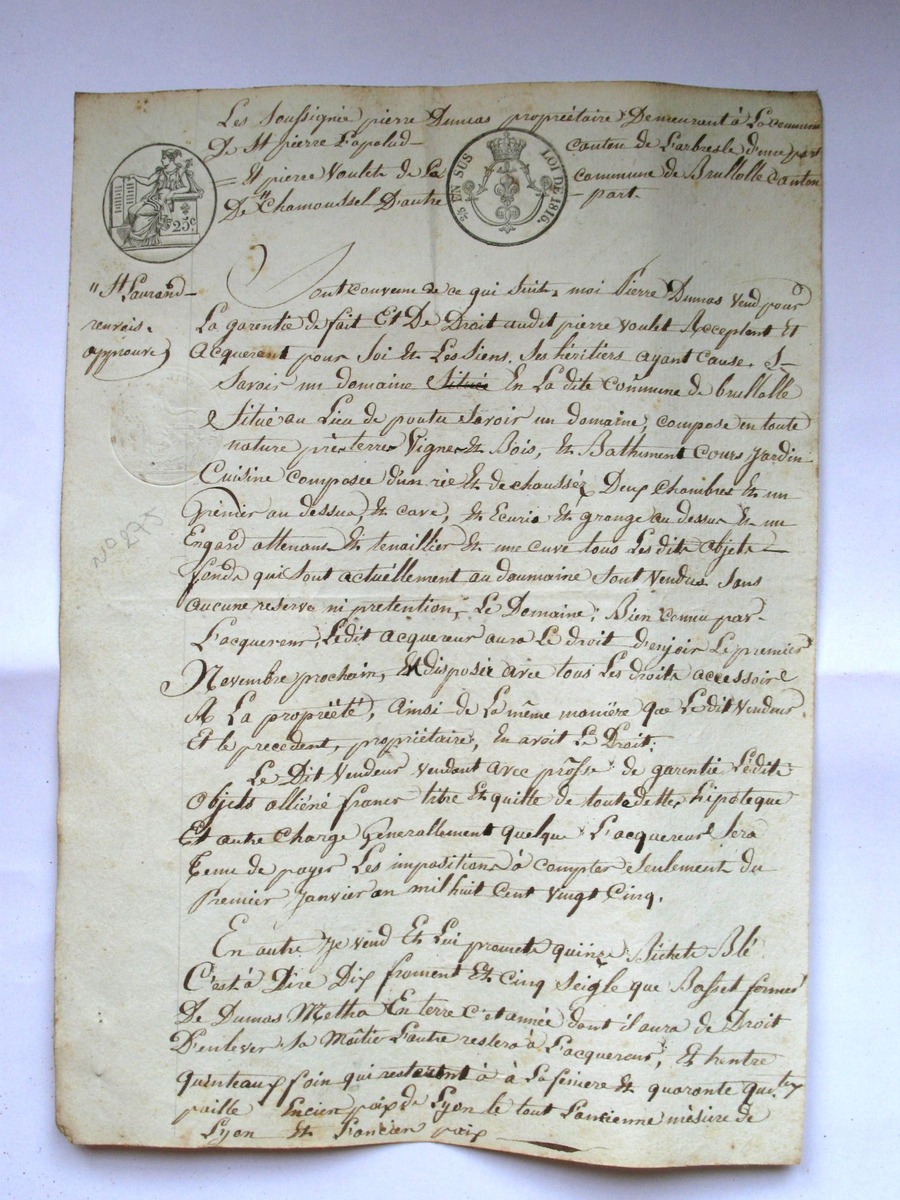 Les soussignés pierre Dumas propriétaire Demeurant à La commune
De St pierre Lapalud canton de Larbresle d'une part
Et pierre Voulet de La commune de Brullolle Canton
De " Chamoussel D'autre part.
25 c
25 EN SUS
LOI DE 1816.
" St Laurand
renvois
approuvé
Sont convenu de ce qui suit, moi Pierre Dumas vend pour
La garentie de fait Et De Droit audit pierre voulet Acceptant Et
acquerant pour Soi Et Les Siens, Ses héritiers ayant cause, S
Savoir un domaine Situé En La dite commune de brullolle
Situé au Lieu de savoir un domaine, compose en toute
nature près terres Vignes Et Bois, Et Bathiment Cours Jardin
Cuisine composée d'un réé Et de chaussé Deux chambres Et un
Grénier au dessus, Et cave, Et Ecurie Et grange au dessus Et un
Engard attenans Et tenaillier Et une cuve tous Les dits objets
fonds qui sont actuéllement au doumaine sont vendus sans
aucune reserve ni pretention, Le Domaine; Bien connu par
L'acquereur, Ledit acquereur aura Le droit d'enjoir Le premier
Novembre prochain, Et disposée avec tous Les droits accessoire
A La propriété, ainsi de La même manière que Le dit Vendeur
Et le precedent, propriétaire, En avoit Le Droit;
No 275
Le Dit Vendeur vendant avec de garentie Ledits
Objets alliéné francs libre Et quitte de toute dettes, hipoteque
Et autre Charge Generallement quelque L'acquereur Sera
tenu de payer Les impositions à compter seulement du
Premier Janvier an mil huit Cent Vingt Cinq.
En autre Je vend Et Lui promets quinze Bichets Blé
C'est à Dire Dix froment Et Cinq Seigle que Basset
De Dumas Metha En terre c'et année dont il aura de Droit
D'enlever Sa Moitier L'autre restera à L'acquereur, Et trentre
quinteaux foin qui resteront à à La feniere Et quaronte
paille Encien poix de Lyon le tout L'ancienne mésure de
Lyon Et L'ancien poix